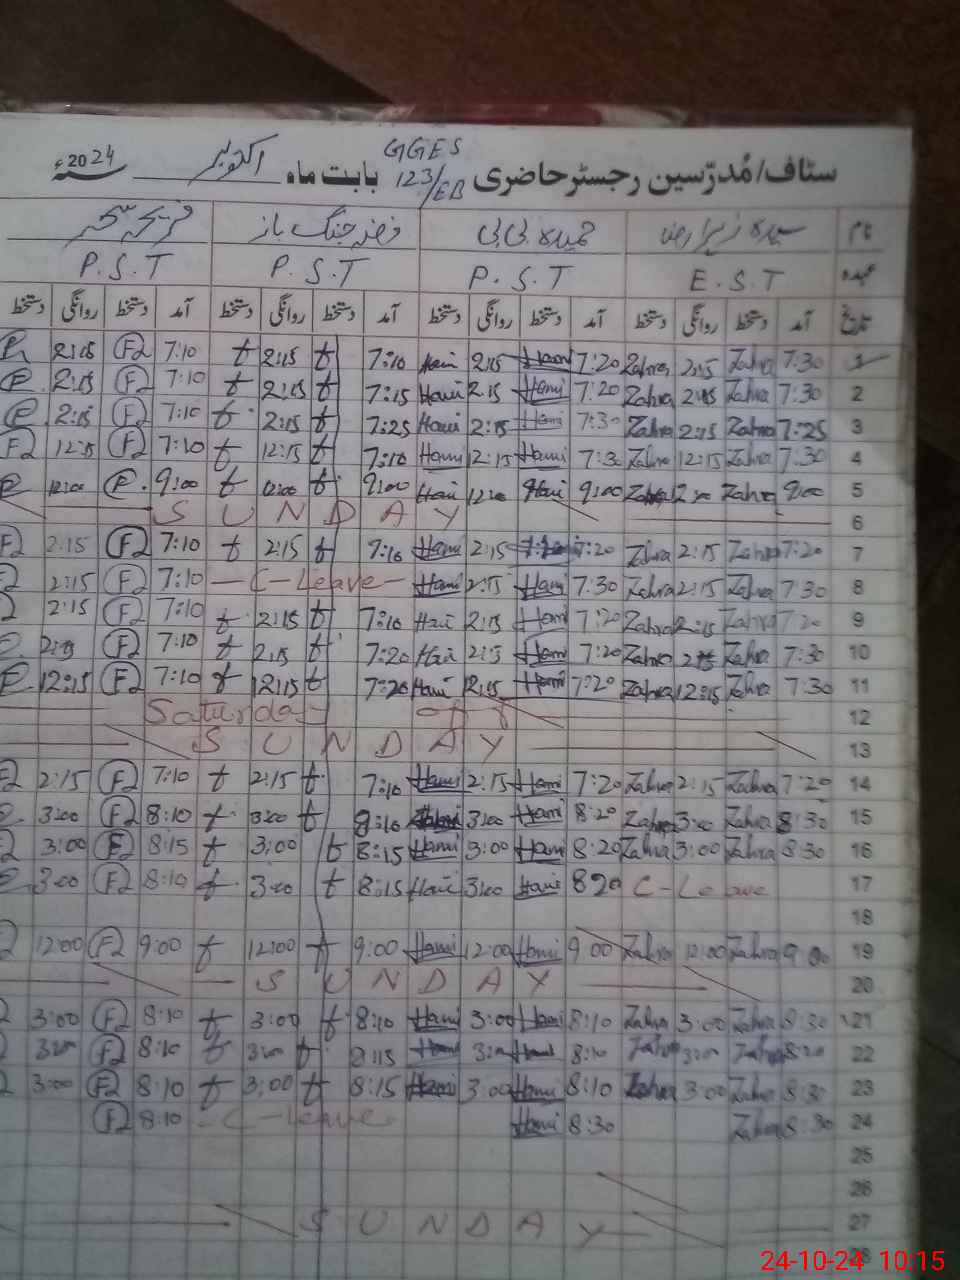 GGES
سٹاف/مُدرّسین رجسٹر حاضری 123/EB بابت ماہ اکتوبر سنہ 2024ء
نام سیدہ زہرا حمیدہ بی بی جنگ باز فریحہ سحر
عہدہ E.S.T P.S.T P.S.T P.S.T
تاریخ آمد دستخط روانگی دستخط آمد دستخط روانگی دستخط آمد دستخط روانگی دستخط آمد دستخط روانگی دستخط
1 7:30 Zahra 2:15 Zahra 7:20 Hami 2:15 Hami 7:10 t 2:15 t 7:10 F2 2:15
2 7:30 Zahra 2:15 Zahra 7:20 Hami 2:15 Hami 7:15 t 2:15 t 7:10 F2 2:15
3 7:25 Zahra 2:15 Zahra 7:30 Hami 2:15 Hami 7:25 t 2:15 t 7:10 F2 2:15
4 7:30 Zahra 12:15 Zahra 7:30 Hami 12:15 Hami 7:10 t 12:15 t 7:10 F2 12:15 F2
5 9:00 Zahra 12:00 Zahra 9:00 Hami 12:00 Hami 9:00 t 12:00 t 9:00 12:00
6 SUNDAY
7 7:20 Zahra 2:15 Zahra 7:20 2:15 Hami 7:10 t 2:15 t 7:10 F2 2:15 F2
8 7:30 Zahra 2:15 Zahra 7:30 Hami 2:15 Hami C-Leave 7:10 F2 2:15
9 7:20 Zahra 2:15 Zahra 7:20 Hami 2:15 Hami 7:10 t 2:15 t 7:10 F2 2:15
10 7:30 Zahra 2:15 Zahra 7:20 Hami 2:15 Hami 7:20 t 2:15 t 7:10 F2 2:15
11 7:30 Zahra 12:15 Zahra 7:20 Hami 12:15 Hami 7:20 t 12:15 t 7:10 F2 12:15
12 Saturday off
13 SUNDAY
14 7:20 Zahra 2:15 Zahra 7:20 Hami 2:15 Hami 7:10 t 2:15 t 7:10 F2 2:15
15 8:30 Zahra 3:00 Zahra 8:20 Hami 3:00 Hami 8:10 t 3:00 t 8:10 F2 3:00
16 8:30 Zahra 3:00 Zahra 8:20 Hami 3:00 Hami 8:15 t 3:00 t 8:15 F2 3:00
17 C-Leave 820 Hami 3:00 Hami 8:15 t 3:00 t 8:10 F2 3:00
18
19 9:00 Zahra 12:00 Zahra 9:00 Hami 12:00 Hami 9:00 t 12:00 t 9:00 F2 12:00
20 SUNDAY
21 8:30 Zahra 3:00 Zahra 8:10 Hami 3:00 Hami 8:10 t 3:00 t 8:10 F2 3:00
22 8:20 Zahra 3:00 Zahra 8:10 Hami 3:00 Hami 8:15 t 3:00 t 8:10 F2 3:00
23 8:30 Zahra 3:00 Zahra 8:10 Hami 3:00 Hami 8:15 t 3:00 t 8:10 F2 3:00
24 8:30 Zahra 8:30 Hami C-leave 8:10 F2
25
26
27 SUNDAY
28
24-10-24 10:15